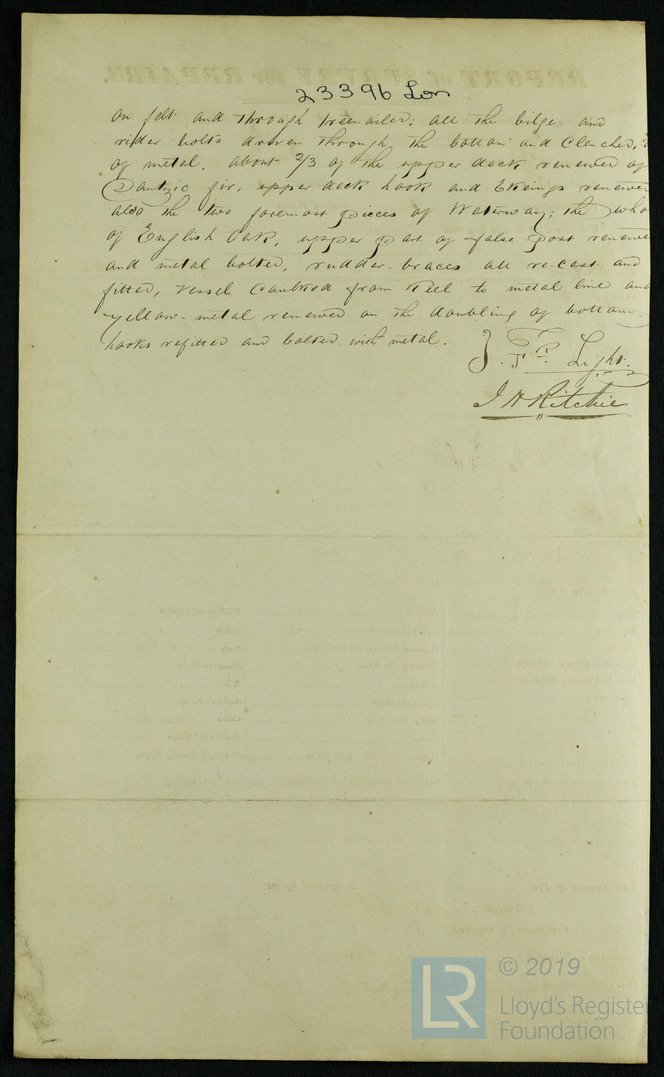 23396 Lon
on felt and through treenailed; all the bilge and
rider bolts driven through the bottom and clenched,
of metal. about 2/3 of the upper deck renewed of
Dantzic fir, upper deck hook and Ekeings renewed
also the two foremost pieces of Waterway; the who
of English Oak, upper part of false post renewed
and metal bolted, rudder-braces all re-cast and
fitted, Vessel Caulked from Keel to metal line and
yellow-metal renewed on the doubling of bottom.
hooks refitted and bolted with metal.
Light.
J H Ritchie
© 2019
LR
Lloyd's Register
Foundation